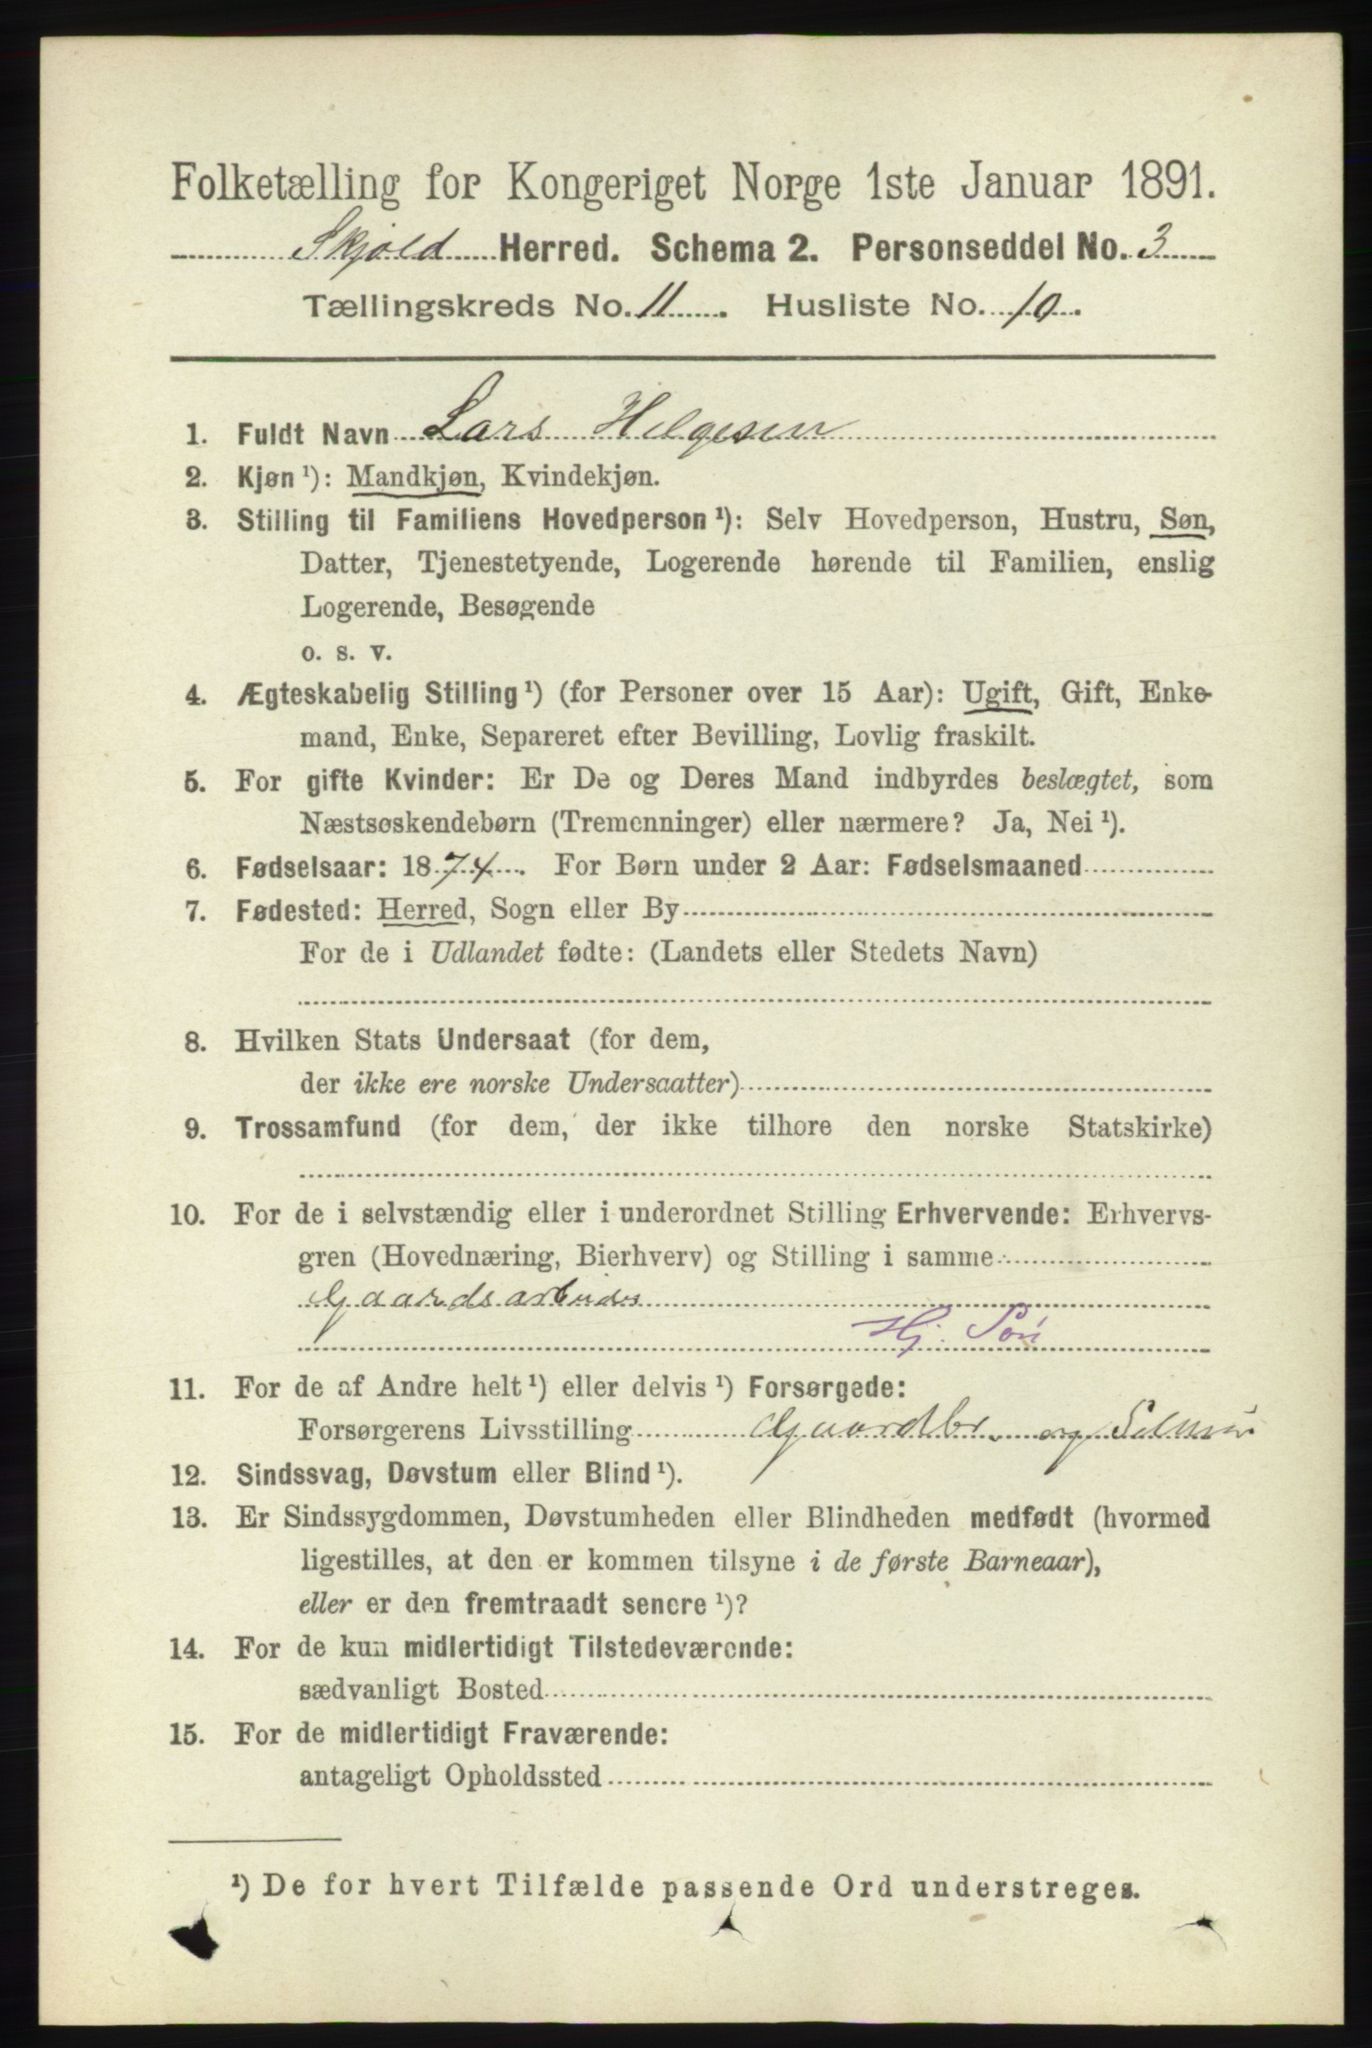 Folketælling for Kongeriget Norge 1ste Januar 1891.
Skjold Herred. Schema 2. Personseddel No. 3
Tællingskreds No. 11. Husliste No. 10.
1. Fuldt Navn Lars Helgesen
2. Kjøn ¹): Mandkjøn, Kvindekjøn.
3. Stilling til Familiens Hovedperson ¹): Selv Hovedperson, Hustru, Søn,
Datter, Tjenestetyende, Logerende hørende til Familien, enslig
Logerende, Besøgende
o. s. v.
4. Ægteskabelig Stilling ¹) (for Personer over 15 Aar): Ugift, Gift, Enke-
mand, Enke, Separeret efter Bevilling, Lovlig fraskilt.
5. For gifte Kvinder: Er De og Deres Mand indbyrdes beslægtet, som
Næstsøskendebørn (Tremenninger) eller nærmere? Ja, Nei ¹).
6. Fødselsaar: 1874. For Børn under 2 Aar: Fødselsmaaned
7. Fødested: Herred, Sogn eller By
For de i Udlandet fødte: (Landets eller Stedets Navn)
8. Hvilken Stats Undersaat (for dem,
der ikke ere norske Undersaatter)
9. Trossamfund (for dem, der ikke tilhore den norske Statskirke)
10. For de i selvstændig eller i underordnet Stilling Erhvervende: Erhvervs-
gren (Hovednæring, Bierhverv) og Stilling i samme
Gaardsarbeider
Hj. Søn
11. For de af Andre helt ¹) eller delvis ¹) Forsørgede:
Forsørgerens Livsstilling Gaardbr. og
12. Sindssvag, Døvstum eller Blind ¹).
13. Er Sindssygdommen, Døvstumheden eller Blindheden medfødt (hvormed
ligestilles, at den er kommen tilsyne i de første Barneaar),
eller er den fremtraadt senere ¹)?
14. For de kun midlertidigt Tilstedeværende:
sædvanligt Bosted
15. For de midlertidigt Fraværende:
antageligt Opholdssted
¹) De for hvert Tilfælde passende Ord understreges.